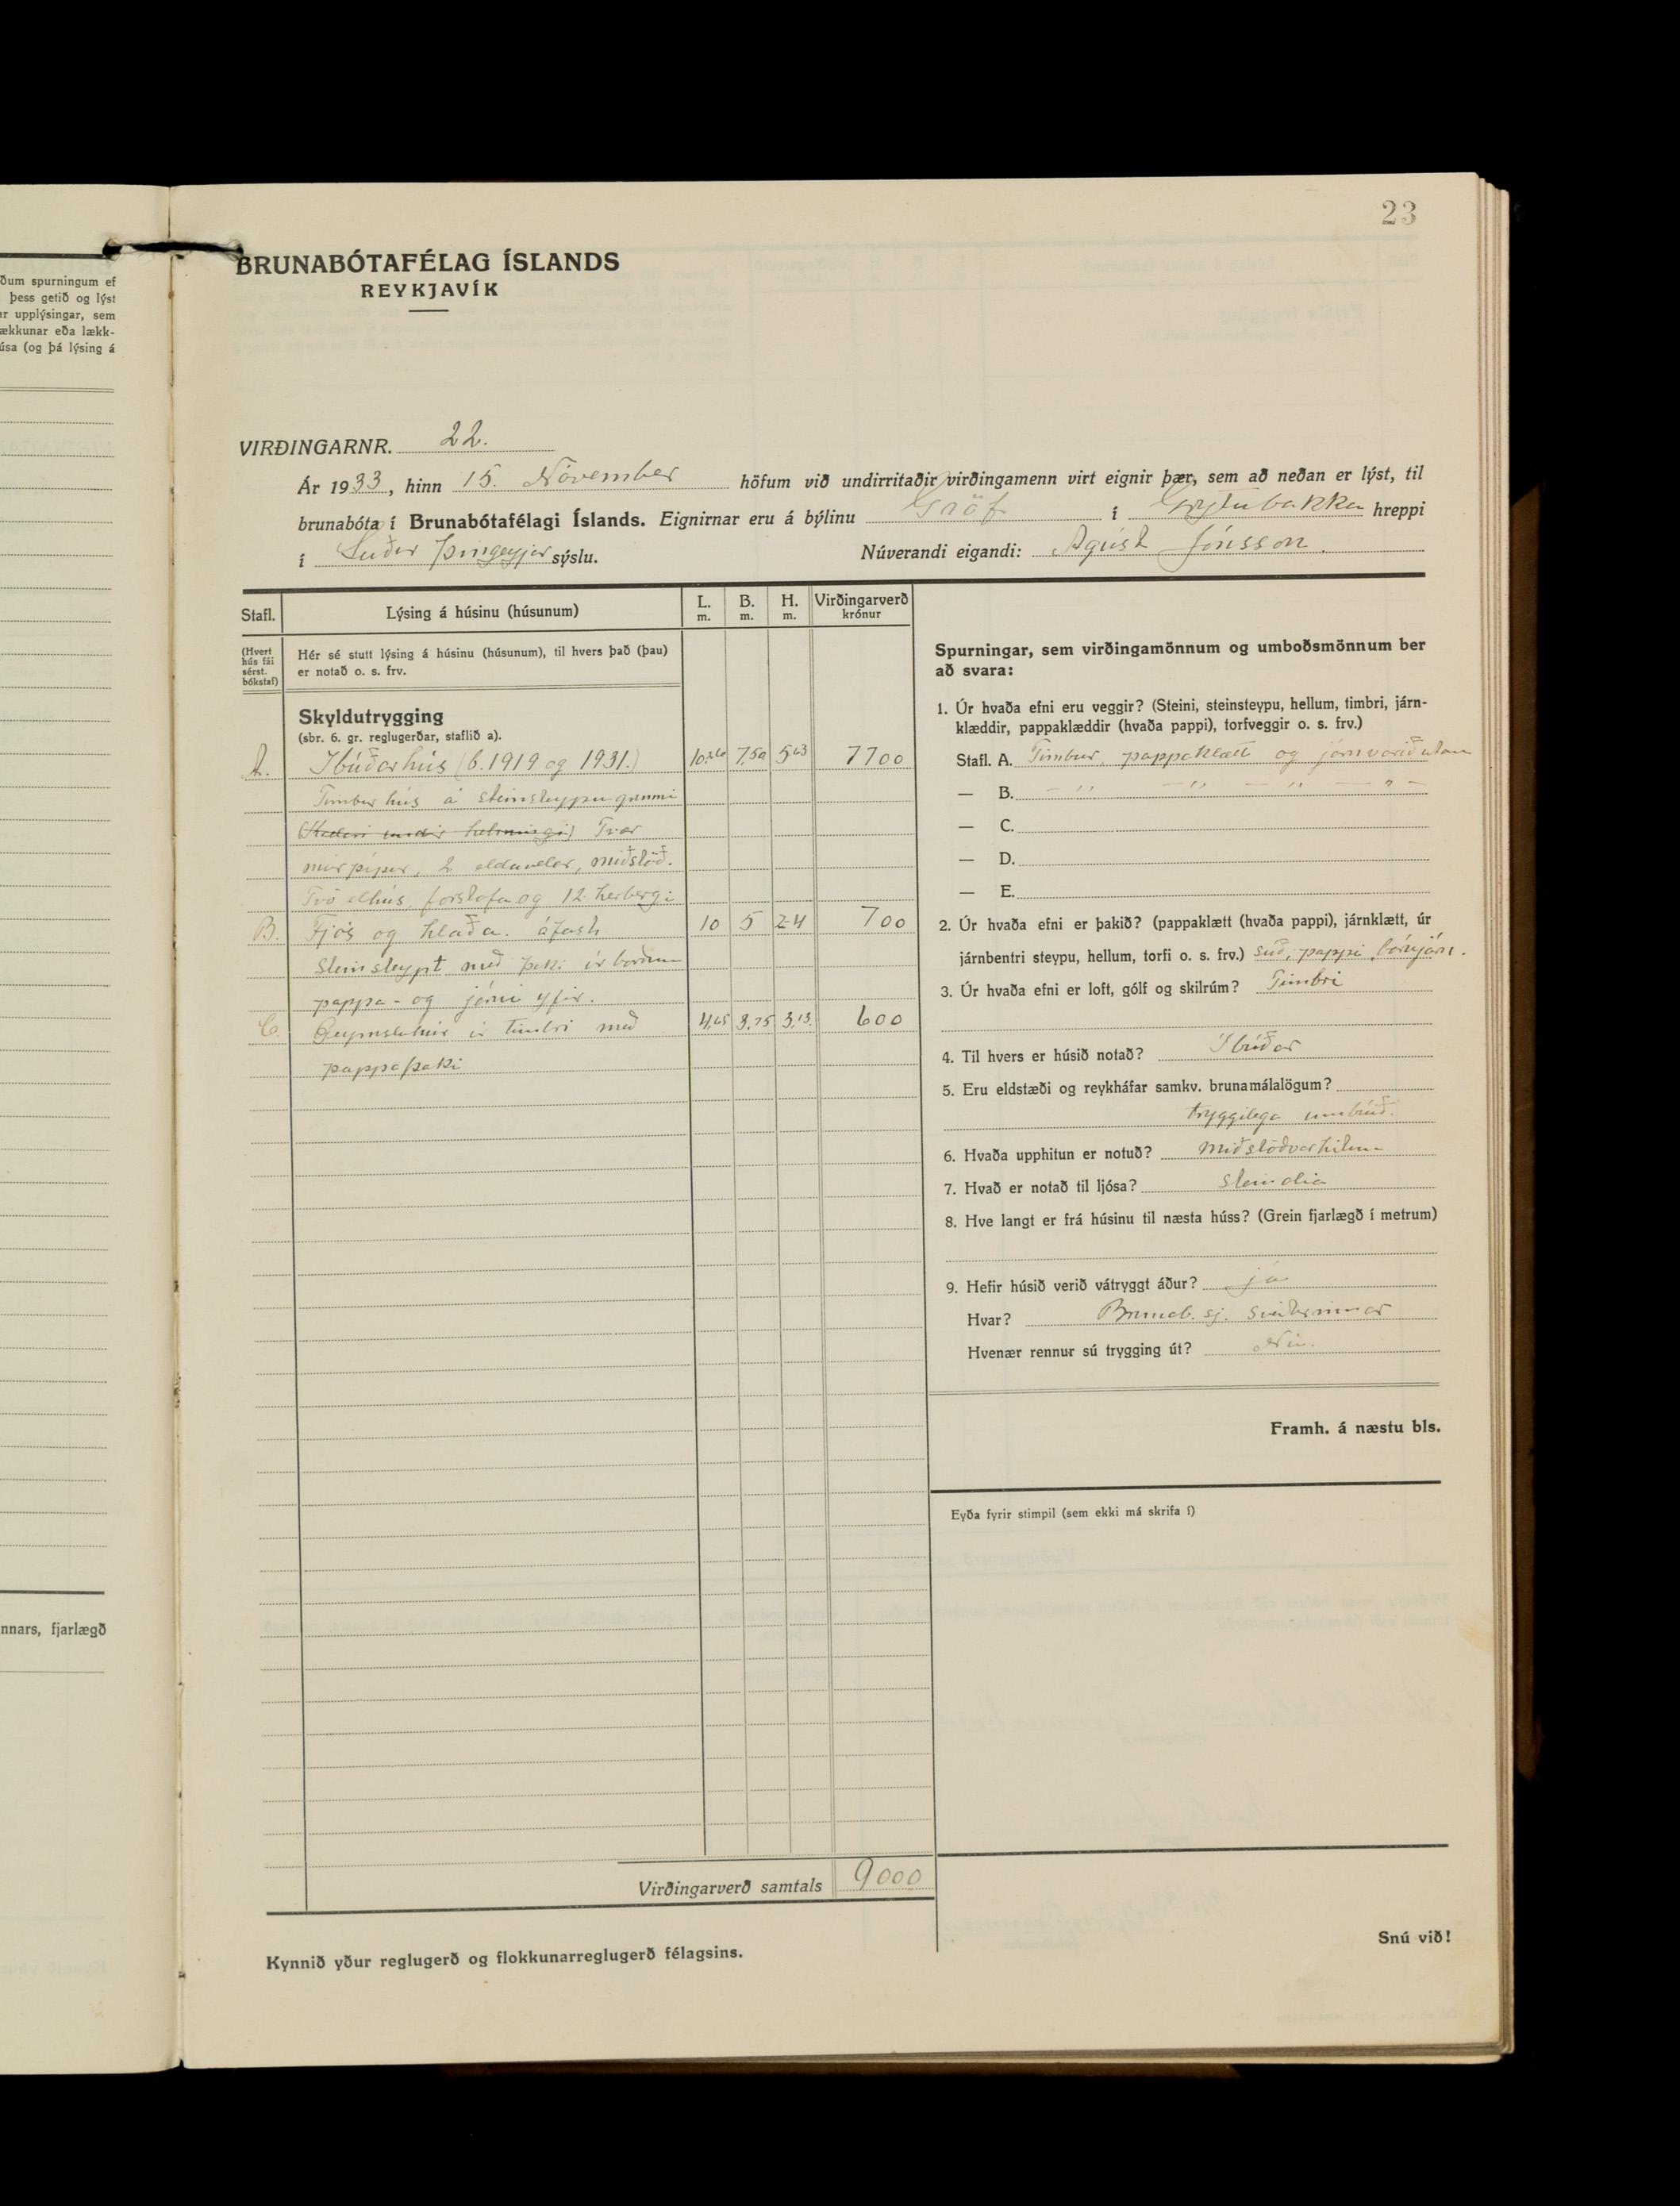 ðum spurningum ef
þess getið og lýst
ar upplýsingar, sem
ækkunar eða lækk-
úsa (og þá lýsing á
nnars, fjarlægð
23
BRUNABÓTAFÉLAG ÍSLANDS
REYKJAVÍK
VIRÐINGARNR. 22.
Ár 1933, hinn 15. Nóvember höfum við undirritaðir virðingamenn virt eignir þær, sem að neðan er lýst, til
brunabóta í Brunabótafélagi Íslands. Eignirnar eru á býlinu Gröf í Grýtubakka hreppi
í Suður Þingeyjar sýslu. Núverandi eigandi: Ágúst Jónsson.
Stafl. Lýsing á húsinu (húsunum) L. m. B. m. H. m. Virðingarverð krónur
(Hvert hús fái sérst. bókstaf)
Hér sé stutt lýsing á húsinu (húsunum), til hvers það (þau)
er notað o. s. frv.
Skyldutrygging
(sbr. 6. gr. reglugerðar, staflið a).
A. Íbúðarhús (b. 1919 og 1931.) 7,50 5 63 7700
Timburhús á steinsteypugrunni
(Kjallari undir helmingi) Tvær
múrpípur, 2 eldavélar, miðstöð.
Tvö elhús, forstofa og 12 herbergi
B. Fjós og hlaða. áfast 10 5 2-4 700
Steinsteypt með þaki úr borðum
pappa- og járni yfir.
C. Geymsluhús úr timbri með 4,65 3,75 3,13 600
pappaþaki
Virðingarverð samtals 9000
Kynnið yður reglugerð og flokkunarreglugerð félagsins.
Spurningar, sem virðingamönnum og umboðsmönnum ber
að svara:
1. Úr hvaða efni eru veggir? (Steini, steinsteypu, hellum, timbri, járn-
klæddir, pappaklæddir (hvaða pappi), torfveggir o. s. frv.)
Stafl. A. Timbur, pappaklætt og járnvarið utan
— B. — " — " — " — " —
— C.
— D.
— E.
2. Úr hvaða efni er þakið? (pappaklætt (hvaða pappi), járnklætt, úr
járnbentri steypu, hellum, torfi o. s. frv.) Súð, pappi, bárujárn.
3. Úr hvaða efni er loft, gólf og skilrúm? Timbri
4. Til hvers er húsið notað? Íbúðar
5. Eru eldstæði og reykháfar samkv. brunamálalögum?
tryggilega umbúið.
6. Hvaða upphitun er notuð? Miðstöðvarhitun
7. Hvað er notað til ljósa? Steinolía
8. Hve langt er frá húsinu til næsta húss? (Grein fjarlægð í metrum)
9. Hefir húsið verið vátryggt áður? já
Hvar? Brunab. sj. sveitarinnar
Hvenær rennur sú trygging út? Nú.
Framh. á næstu bls.
Eyða fyrir stimpil (sem ekki má skrifa í)
Snú við!